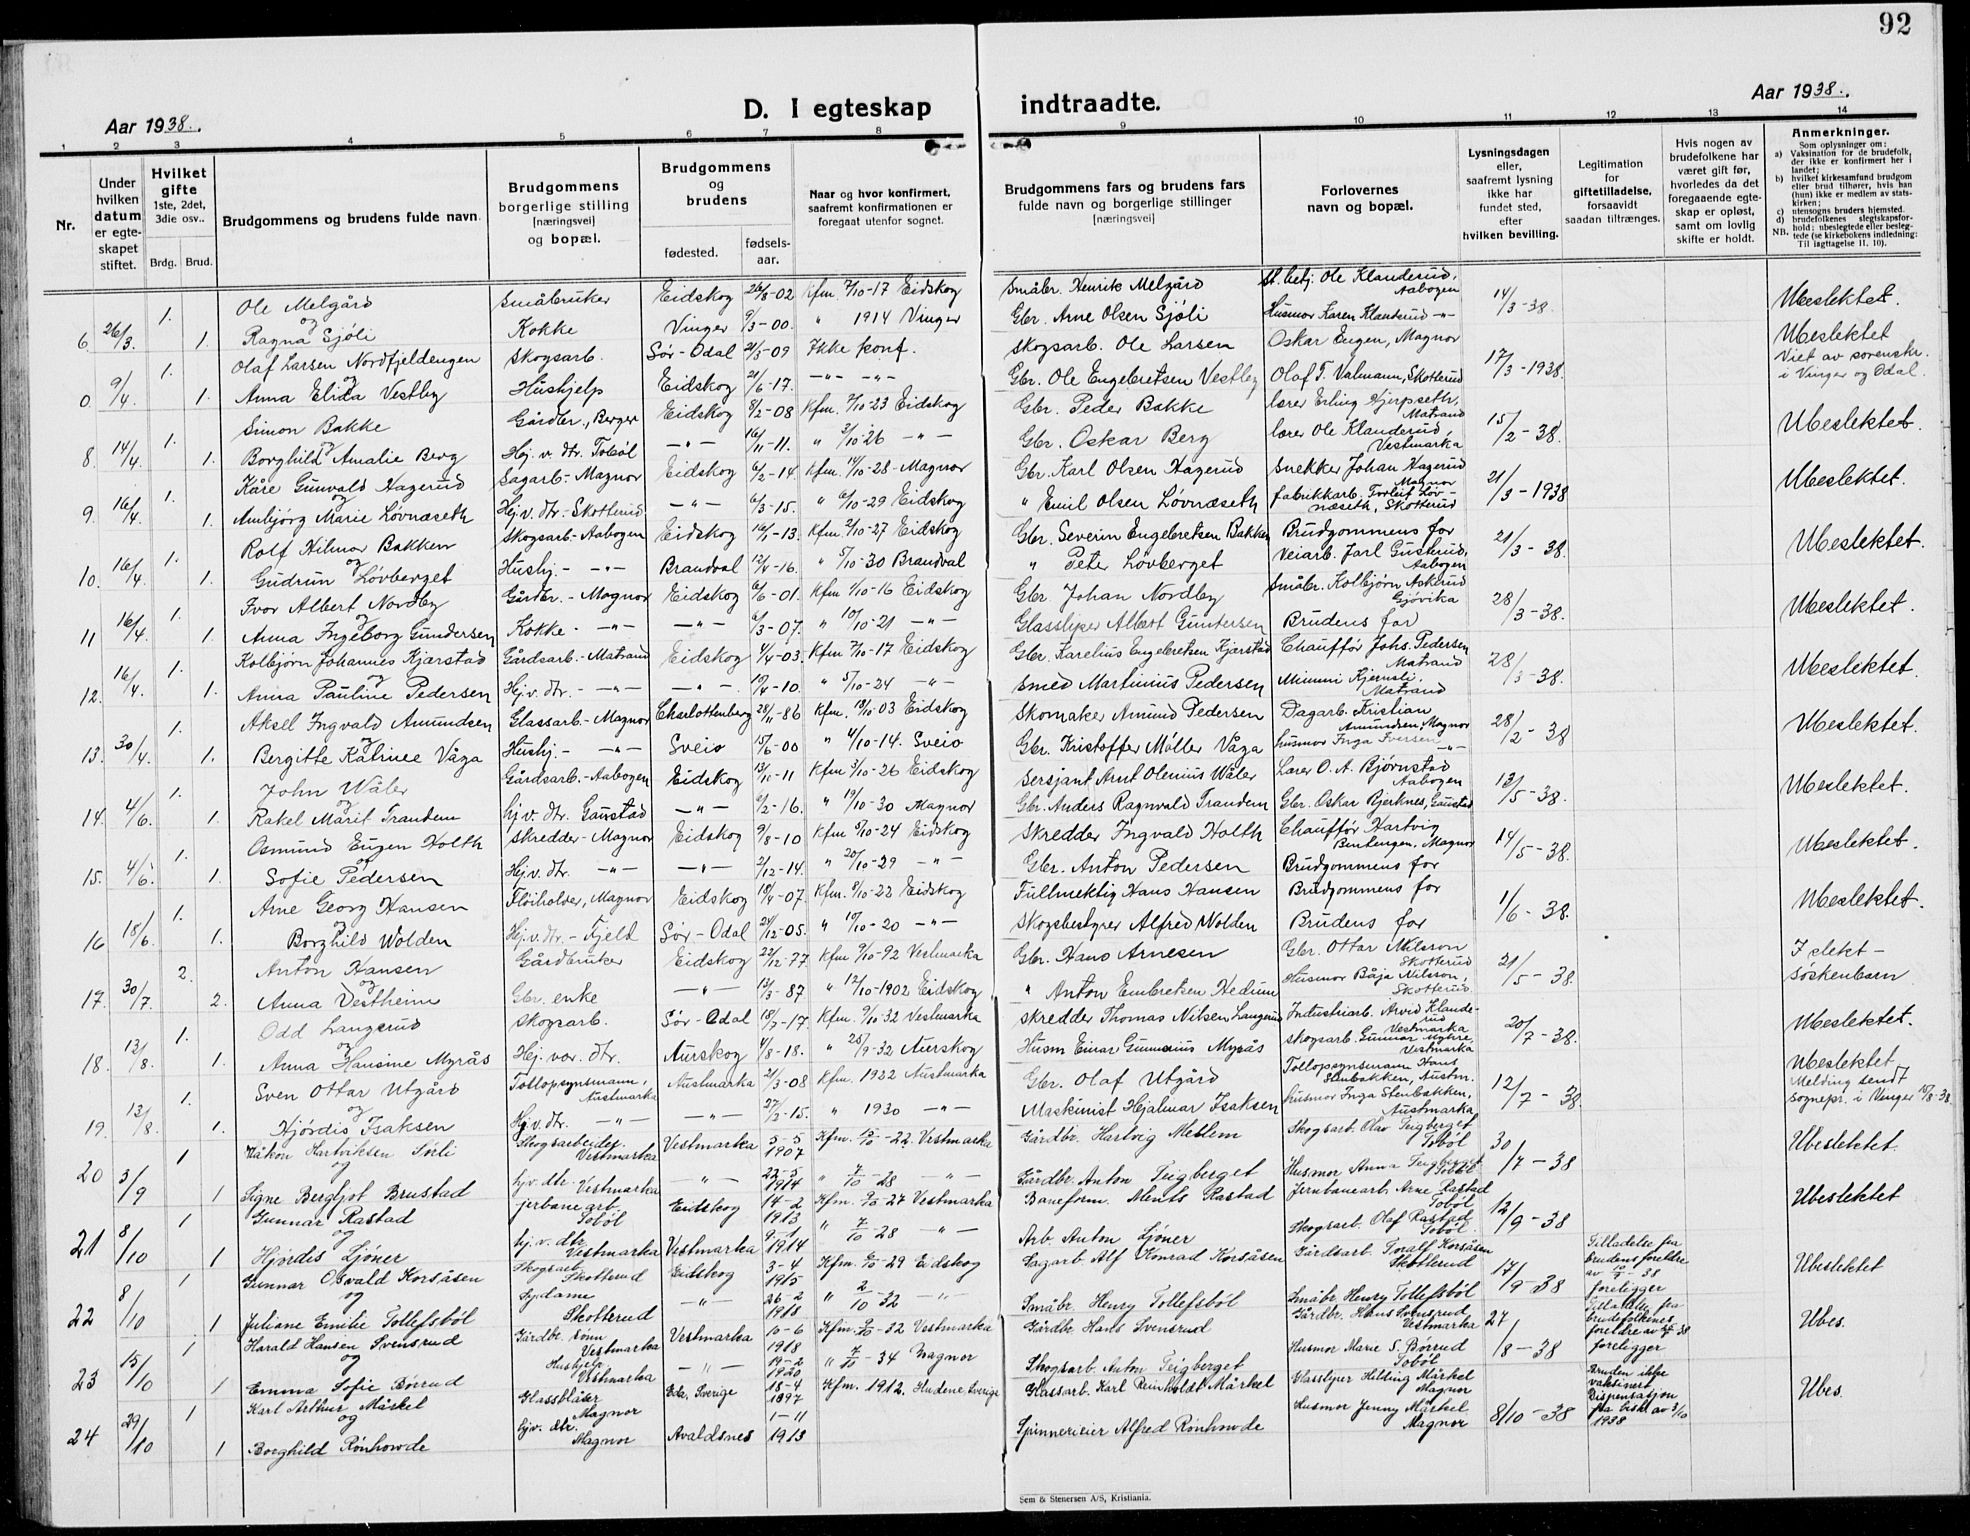 92
Aar 1938.
D. I egteskap
indtraadte.
Aar 1938.
1 2 3 4 5 6 7 8 9 10 11 12 13 14
Nr.
Under hvilken datum er egte-skapet stiftet.
Hvilket gifte 1ste, 2det, 3die osv..
Brdg. Brud.
Brudgommens og brudens fulde navn.
Brudgommens borgerlige stilling [næringsvei] og bopæl.
Brudgommens og brudens
fødested.
fødsels-aar.
Naar og hvor konfirmert, saafremt konfirmationen er foregaat utenfor sognet.
Brudgommens fars og brudens fars fulde navn og borgerlige stillinger [næringsvei]
Forlovernes navn og bopæl.
Lysningsdagen eller, saafremt lysning ikke har fundet sted, efter hvilken bevilling.
Legitimation for giftetilladelse, forsaavidt saadan tiltrænges.
Hvis nogen av brudefolkene har været gift før, hvorledes da det foregaaende egte-skap er opløst, samt om lovlig skifte er holdt.
Anmerkninger.
Som oplysninger om:
a) Vaksination for de brudefolk, der ikke er konfirmert her i landet;
b) hvilket kirkesamfund brudgom eller brud tilhører, hvis han (hun) ikke er medlem av stats-kirken;
c) utensogns bruders hjemsted.
d) brudefolkenes slegtskapsfor-hold: ubeslegtede eller besleg-tede (se kirkebokens indledning:
NB. Til iagttagelse II. 10).
1. Ole Melgård Småbruker Eidskog 26/8-02 Kfm. 7/10-17 Eidskog Småbr. Henrik Melgård Ole Klanderud, Aabogen 14/3-38. Ubeslektet.
6. 26/3. 1. og Ragna Sjøli Kokke Vinger 9/3-00. " 1914 Vinger Gbr. Arne Olsen Sjøli Husmor Karen Klanderud -"-
1. Olaf Larsen Nordfjeldengen Skogsarb. Sør-Odal 21/5-09 Ikke konf. Skogsarb. Ole Larsen Oskar Engen, Magnor 17/3-1938. Ubeslektet Viet av sorenskr. i Vinger og Odal.
0. 9/4. 1. og Anna Elida Vestby Hushjelp Eidskog 21/6-17. -"- -"- Gbr. Ole Engebretsen Vestby Olaf T. Valmann, Skotterud
1. Simon Bakke Gårdbr., Berger Eidskog 8/2-08 Kfm. 7/10-23 Eidskog Gbr. Peder Bakke lærer Erling Hjerpseth, Matrand 15/2-38. Ubeslektet.
8. 14/4. 1. og Borghild Amalie Berg Hj. v. dtr. Tobøl -"- 16/11-11. " 3/10-26 -"- Gbr. Oskar Berg lærer Ole Klanderud, Vestmarka
1. Kåre Gunvald Hagerud Sagarb.- Magnor Eidskog 6/2-14 Kfm. 14/10-28- Magnor Gbr. Karl Olsen Hagerud Snekker Johan Hagerud Magnor 21/3-1938 Ubeslektet.
9. 16/4. 1. og Ambjørg Marie Løvnæseth Hj. v. dtr.- Skotterud -"- 6/3-15. " 6/10-29 Eidskog " Emil Olsen Løvnæseth fabrikkarb. Torleif Løv-næseth, Skotterud
1. Rolf Hilmar Bakken Skogsarb.- Aabogen Eidskog 16/1-13. Kfm. 2/10-27 Eidskog Gbr. Severin Engebretsen Bakken Brudgommens far 21/3-38. Ubeslektet.
10. 16/4. 1. og Gudrun Løvberget Hushj.- -"- Brandval 12/4-16. " 5/10-30 Brandval " Peter Løvberget Veiarb. Jarl Gusterud, Aabogen
1. Ivar Albert Nordby Gårdbr.- Magnor Eidskog 6/6-01. Kfm. 1/10-16 Eidskog Gbr. Johan Nordby Småbr. Kolbjørn Askerud Gjøvika 28/3-38. Ubeslektet.
11 16/4. 1. og Anna Ingeborg Gundersen Kokke- -"- -"- 6/3-07. " 10/10-21 -"- Glassliper Albert Guntersen Brudens far
1. Kolbjørn Johannes Kjærstad Gårdsarb.- Matrand Eidskog 4/4-03. Kfm. 7/10-17 Eidskog Gbr. Karelius Engebretsen Kjærstad Chauffør Johs. Pedersen Matrand 28/3-38. Ubeslektet.
12. 16/4. 1. og Anna Pauline Pedersen Hj. v. dtr.- -"- -"- 19/4-10. " 5/10-24 -"- Smed Martinius Pedersen Mimmi Kjernsli, Matrand
1. Aksel Ingvald Amundsen Glassarb.- Magnor Charlottenberg 28/11-86 Kfm. 18/10-03 Eidskog Skomaker Amund Pedersen Dagarb. Kristian Amundsen, Magnor 28/2-38 Ubeslektet.
13. 30/4. 1. og Bergitte Katrine Våga Hushj.- -"- Sveio 15/6-00 " 4/10-14. Sveio Gbr. Kristoffer Møller Våga husmor Inga Iversen -"-
1. John Wåler Gårdsarb.- Aabogen Eidskog 13/10-11 Kfm. 3/10-26 Eidskog Sersjant Arnt Olenius Wåler Lærer O. A. Bjørnstad Aabogen 13/5-38. Ubeslektet.
14. 4/6. 1. og Rakel Marit Trandem hj. v. dtr. Gaustad -"- 6/2-16. " 19/10-30 Magnor Gbr. Anders Ragnvald Trandem Gbr. Oskar Bjerknes, Gaustad
1. Osmund Eugen Holth Skredder- Magnor Eidskog 9/8-10 Kfm. 5/10-24 Eidskog Skredder Ingvald Holth Chauffør Hartvig Bentengen, Magnor 14/5-38. Ubeslektet.
15. 4/6. 1. og Sofie Pedersen Hj. v. dtr. -"- -"- 21/12-14. " 20/10-29 -"- Gbr. Anton Pedersen Brudgommens far
1. Arne Georg Hansen Fløiholder, Magnor Eidskog 18/4-07. Kfm. 8/10-22 Eidskog Fullmektig Hans Hansen Brudgommens far 1/6-38. Ubeslektet.
16 18/6. 1. og Borghild Wolden Hj. v. dtr.- Fjeld Sør-Odal 24/12-05. " 10/10-20 -"- Skogsbestyrer Alfred Wolden Brudens far
2. Anton Hansen Gårdbruker Eidskog 22/12-77 Kfm. 9/10-92 Vestmarka Gbr. Hans Arnesen Gbr. Ottar Nilsson Skotterud 21/5-38. I slekt- søskenbarn
17. 30/7. 2. og Anna Vestheim Gbr. enke -"- 13/3-87 " 12/10-1902 Eidskog " Anton Embretsen Hedum Husmor Båja Nilsson, Skotterud
1. Odd Langerud Skogsarb. Sør-Odal 18/7-17 Kfm. 9/10-32 Vestmarka Skredder Thomas Nilsen Langerud Industriarb. Arvid Klande-rud Vestmarka 20/7-38. Ubeslektet.
18. 13/8. 1. og Anna Hansine Myrås Hj. vær. dtr. Aurskog 4/8-18. " 25/9-32 Aurskog Husm Einar Gunnerius Myrås skogsarb. Gunnar Myhre, Vestmarka
1. Sven Ottar Utgård Tollopsynsmann, Austmarka Austmarka 21/3-08 Kfm. 1922 Austmarka Gbr. Olaf Utgård Tollopsynsmann Hans Stenbakken, Austm. 12/7-38 Ubeslektet Melding sendt sognepr. i Vinger 15/8-38.
19. 13/8. 1. og Hjørdis Isaksen Hj. v. dtr. -"- -"- 27/3-15. " 1930 -"- Maskinist Hjalmar Isaksen husmor Inga Stenbakken, Austmarka
1 Håkon Hartviksen Sørli Skogsarbeider Vestmarka Vestmarka 5-5 1907 Kfm. 15/10-22. Vestmarka Gårdbr. Hartvig Mellem Skogsarb. Olav Teigberget Tobøl 30/7-38 Ubeslektet
20 3/9 1 og Signe Bergljot Brustad hj. v. dtr. Vestmarka -"- 23-5 1914 " 7/10-28 -"- Gårdbr. Anton Teigberget Husmor Anna Teigberget Tobøl
1 Gunnar Rastad jernbanearb. Tobøl Eidskog 14-2 1913 Kfm. 9/10-27 Vestmarka Baneform. Ments Rastad Jernbanearb. Arne Rastad Tobøl 12/9-38 Ubeslektet
21 8/10 1 og Hjørdis Ljøner hj. v. dtr. Vestmarka Vestmarka 9-1 1914 " 7/10-28 -"- Arb. Anton Ljøner Skogsarb. Olaf Rastad Tobøl
1 Gunnar Osvald Korsåsen Skogsarb. Skotterud Eidskog 3-4 1915 Kfm. 6/10-29 Eidskog Sagarb. Alf Konrad Korsåsen Gårdsarb. Toralf Korsåsen Skotterud 17/9-38 Tilladelse fra brudens foreldre av 10/9-38 foreligger Ubeslektet
22 8/10 1 og Juliane Emilie Tollefsbøl Sydame Skotterud -"- 26-2 1918 " 2/10-32 -"- Småbr. Henry Tollefsbøl Småbr. Henry Tollefsbøl
1 Harald Hansen Svensrud Gårdbr. sønn Vestmarka Vestmarka 10-6 1918 Kfm. 9/10-32 Vestmarka Gårdbr. Hans Svensrud Gårdbr. Hans Svensrud Vestmarka 27/8-38 Tilladelse fra brudefolkenes foreldre foreligger Ubes.
23 15/10 1 og Emma Sofie Børrud Hushjelp Vestmarka -"- 19-2 1920 " 7/10-34 Magnor Skogsarb. Anton Teigberget Husmor Marie S. Børrud Tobøl
1 Karl Arthur Mårkel Glassblåser Magnor Sverige 18-4 1897 Kfm. 1912. Hudene Sverige Glassarb. Karl Reinholdt Mårkel Glassliper Hilding Mårkel Magnor 8/10-38 Bruden ikke vaksinert Dispensasjon fra bisk. av 3/10 1938 Ubes.
24 29/10 1 og Borghild Rønhovde hjv. dtr. Magnor Avaldsnes 1-11 1913 Spinnerieier Alfred Rønhovde Husmor Jenny Mårkel Magnor
Sem & Stenersen A/S, Kristiania.